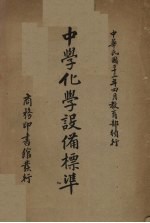 中華民國二十三年四月教育部頒行
中學化學設備標準
商務印書館發行